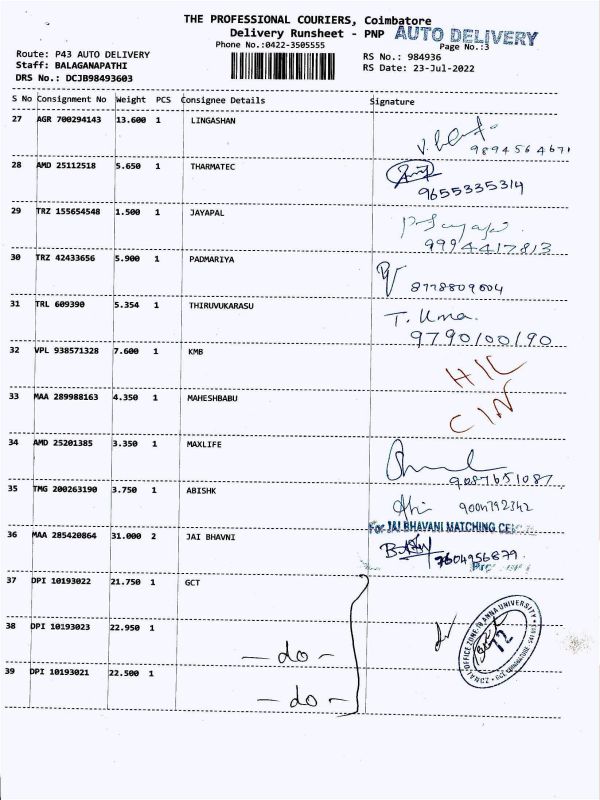 THE PROFESSIONAL COURIERS, Coimbatore
Delivery Runsheet - PNP AUTO DELIVERY
Phone No.:0422-3505555 Page No.:3
Route: P43 AUTO DELIVERY RS No.: 984936
Staff: BALAGANAPATHI RS Date: 23-Jul-2022
DRS No.: DCJB98493603
S No Consignment No Weight PCS Consignee Details Signature
27 AGR 700294143 13.600 1 LINGASHAN
9894564671
28 AMD 25112518 5.650 1 THARMATEC
9655335314
29 TRZ 155654548 1.500 1 JAYAPAL
9994417813
30 TRZ 42433656 5.900 1 PADMARIYA
8778809604
31 TRL 609390 5.354 1 THIRUVUKARASU T. Uma.
9790100190
32 VPL 938571328 7.600 1 KMB
33 MAA 289988163 4.350 1 MAHESHBABU
34 AMD 25201385 3.350 1 MAXLIFE
9087651087
35 TMG 200263190 3.750 1 ABISHK
9004792342
For JAI BHAVANI MATCHING
36 MAA 285420864 31.000 2 JAI BHAVNI
7604956879
37 DPI 10193022 21.750 1 GCT
38 DPI 10193023 22.950 1
- do -
39 DPI 10193021 22.500 1
- do -
ANNA UNIVERSITY
72